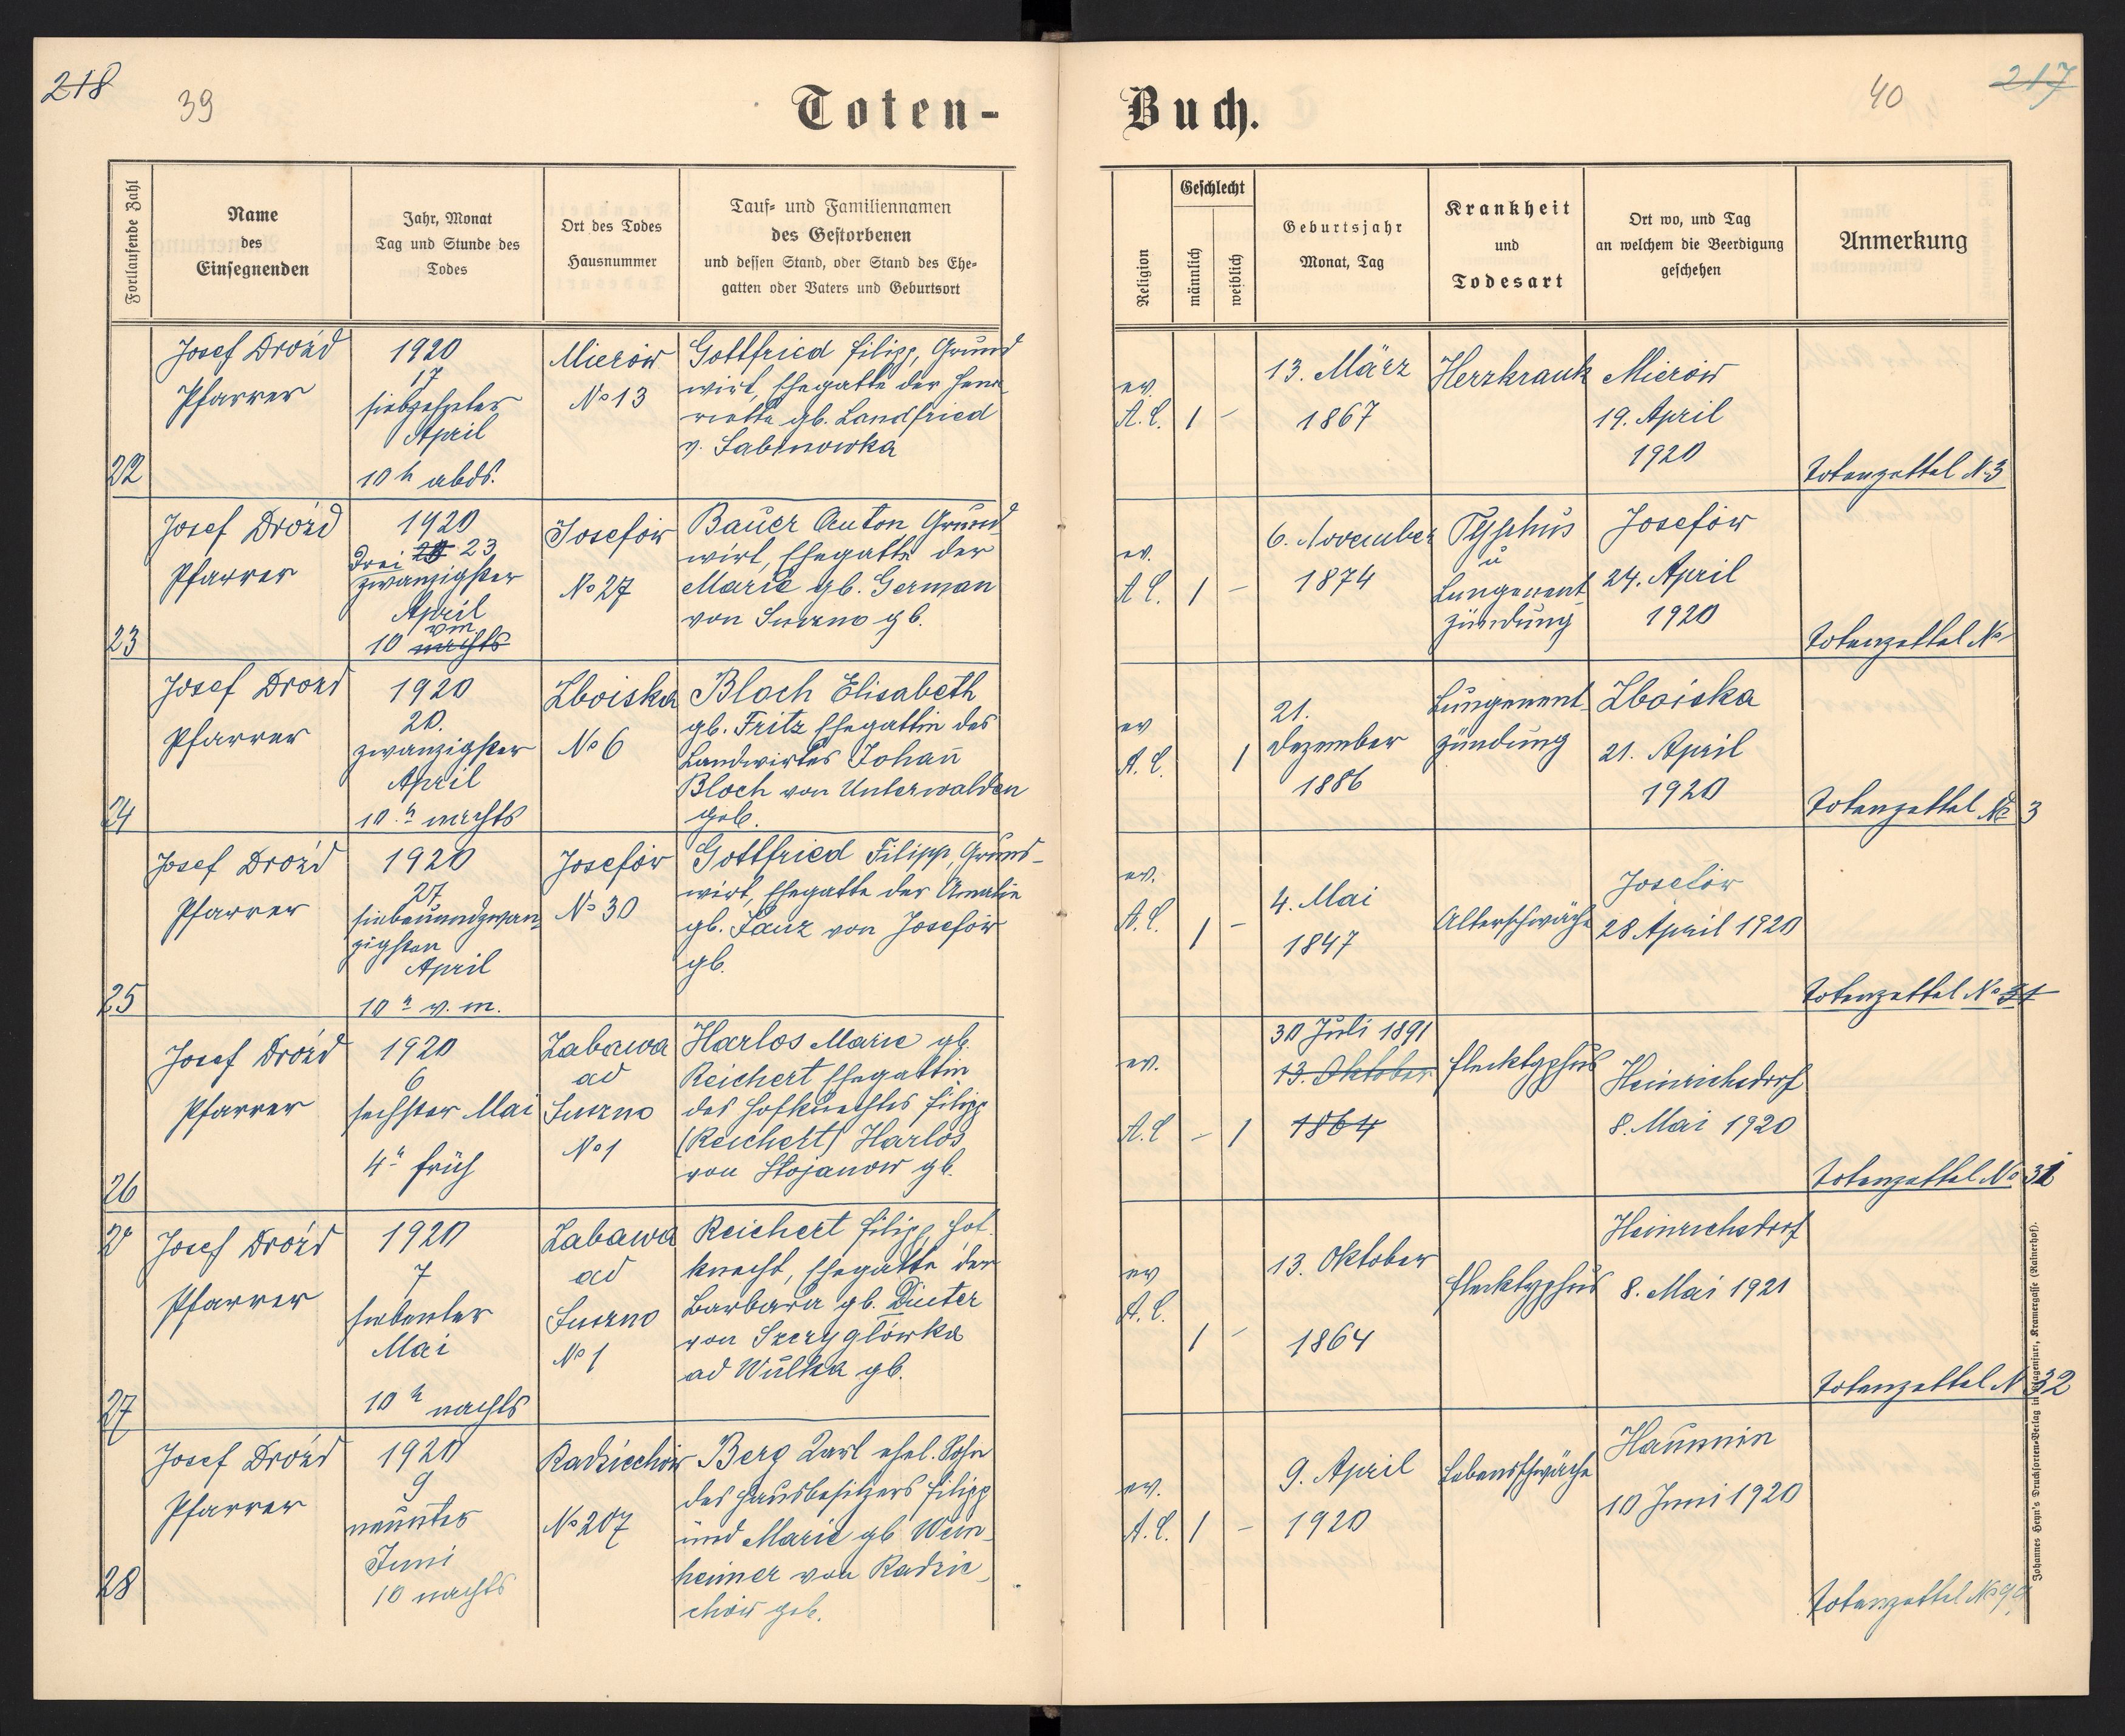 218
39
Toten-
Fortlaufende Zahl
Name
des
Einsegnenden
Jahr, Monat
Tag und Stunde des
Todes
Ort des Todes
Hausnummer
Tauf- und Familiennamen
des Gestorbenen
und dessen Stand, oder Stand des Ehe-
gatten oder Vaters und Geburtsort
22
Josef Drozd
Pfarrer
1920
17
siebzehnter
April
10 h abds.
Mierów
No 13
Gottfried Filipp, Grund
wirt, Ehegatte der Hen-
riette gb. Landfried
v. Sabinowka
23
Josef Drozd
Pfarrer
1920
Drei 20 23
zwanzigster
April
vm
10 nachts
Josefów
No 27
Bauer Anton Grund-
wirt, Ehegatte der
Marie gb. German
von Suszno gb.
24
Josef Drozd
Pfarrer
1920
20.
zwanzigster
April
10 h nachts
Zboiska
No 6
Bloch Elisabeth
gb. Fritz Ehegattin des
Landwirtes Johann
Bloch von Unterwalden
geb.
25
Josef Drozd
Pfarrer
1920
27
siebenundzwan-
zigsten
April
10 h v. m.
Josefów
No 30
Gottfried Filipp, Grund-
wirt, Ehegatte der Amalie
gb. Lanz von Josefów
gb.
26
Josef Drozd
Pfarrer
1920
6
sechster Mai
4 h früh
Zabawa
ad
Suszno
No 1
Harlos Marie gb.
Reichert Ehegattin
des Hofknechtes Filipp
(Reichert) Harlos
von Stojanow gb.
27
Josef Drozd
Pfarrer
1920
7
siebenter
Mai
10 h nachts
Zabawa
ad
Suszno
No 1
Reichert Filipp, Hof-
knecht, Ehegatte der
Barbara gb. Dinter
von Szczyglówka
ad Wulka gb.
28
Josef Drozd
Pfarrer
1920
9
neunter
Juni
10 nachts
Radziechów
No 207
Berg Karl ehel. Sohn
des Hausbesitzers Filipp
und Marie gb Wein-
heimer von Radzie-
chów geb.
Buch.
40
217
Religion
Geschlecht
männlich
weiblich
Geburtsjahr
Monat, Tag
Krankheit
und
Todesart
Ort wo, und Tag
an welchem die Beerdigung
geschehen
Anmerkung
ev.
A.C.
1
-
13. März
1867
Herzkrank
Mierów
19. April
1920
Totenzettel No 3
ev.
A C.
1
-
6. November
1874
Typhus
u
Lungenent-
zündung
Josefów
24. April
1920
Totenzettel No
ev
A. C.
1
21.
Dezember
1886
Lungenent-
zündung
Zboiska
21. April
1920
Totenzettel No 3
ev.
A.C.
1
-
4. Mai
1847
Altersschwäche
Josefów
28 April 1920
Totenzettel No 31
ev.
A.C
-
1
30 Juli 1891
13. Oktober
1864
Flecktyphus
Heinrichsdorf
8. Mai 1920
Totenzettel No 31
ev
A.C.
1
-
13. Oktober
1864
Flecktyphus
Heinrichsdorf
8. Mai 1921
Totenzettel N 32
ev.
A.C.
1
-
9. April
1920
Lebensschwäche
Haunnin
10 Juni 1920
Totenzettel No 99
Johannes Heyn's Drucksorten-Verlag in Klagenfurt, Kramergasse (Rainerhof).